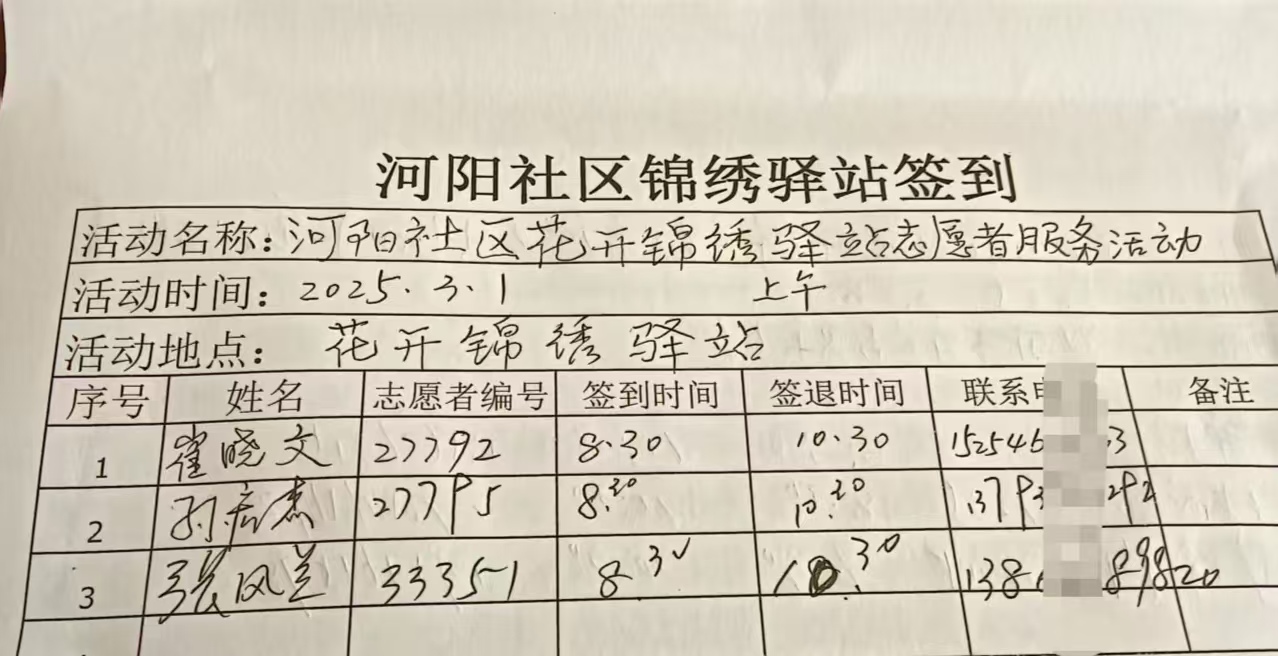 河阳社区锦绣驿站签到
活动名称:河阳社区花开锦绣驿站志愿者服务活动
活动时间:2025.3.1 上午
活动地点: 花开锦绣驿站
序号 姓名 志愿者编号 签到时间 签退时间 联系 备注
1 崔晓文 27792 8.30 10.30 152545 3
2 孙宏杰 27795 8.30 10.30 1379 292
3 张风兰 33351 8.30 10.30 138 89820